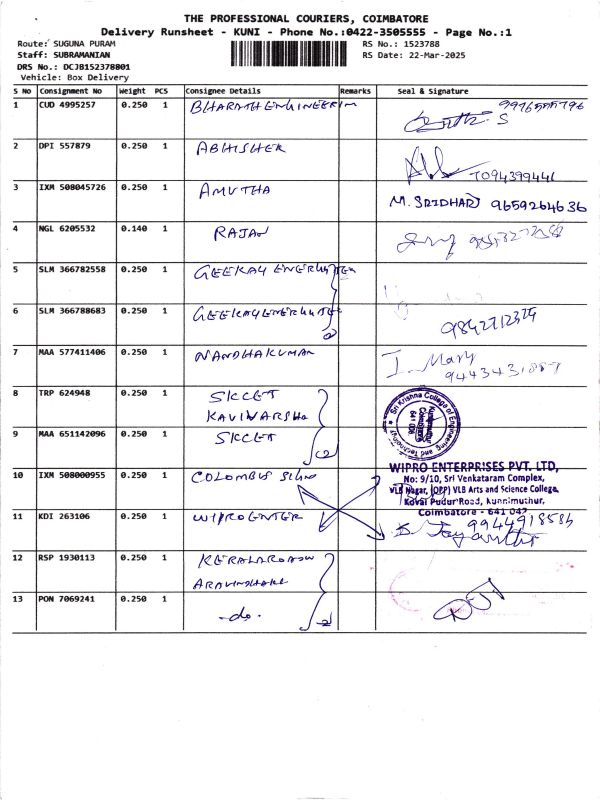 THE PROFESSIONAL COURIERS, COIMBATORE
Delivery Runsheet - KUNI - Phone No.:0422-3505555 - Page No.:1
Route: SUGUNA PURAM
RS No.: 1523788
Staff: SUBRAMANIAN
RS Date: 22-Mar-2025
DRS No.: DCJB152378801
Vehicle: Box Delivery
S No Consignment No Weight PCS Consignee Details Remarks Seal & Signature
1 CUD 4995257 0.250 1 BHARATH ENGINEERIN
2 DPI 557879 0.250 1 ABHISHEK 7094399441
3 IXM 508045726 0.250 1 AMUTHA M. SRIDHAR 9659264636
4 NGL 6205532 0.140 1 RAJAN
5 SLM 366782558 0.250 1 GEEKAY
6 SLM 366788683 0.250 1 GEEKAY 9842712325
7 MAA 577411406 0.250 1 NANDHAKUMAR I. Mary
8 TRP 624948 0.250 1 SKCET
KAVIVARSHA
Sri Krishna College of Engineering and Technology
Kuniamuthur
Coimbatore
641 008
9 MAA 651142096 0.250 1 SKCET
10 IXM 508000955 0.250 1 COLOMBUS
WIPRO ENTERPRISES PVT. LTD,
No: 9/10, Sri Venkataram Complex,
VLB Nagar, (OPP) VLB Arts and Science College,
Kovai Pudur Road, Kunnimuthur,
Coimbatore - 641 042
11 KDI 263106 0.250 1 WIPRO ENTER 9944918584
Jayanthi
12 RSP 1930113 0.250 1
13 PON 7069241 0.250 1 -do-